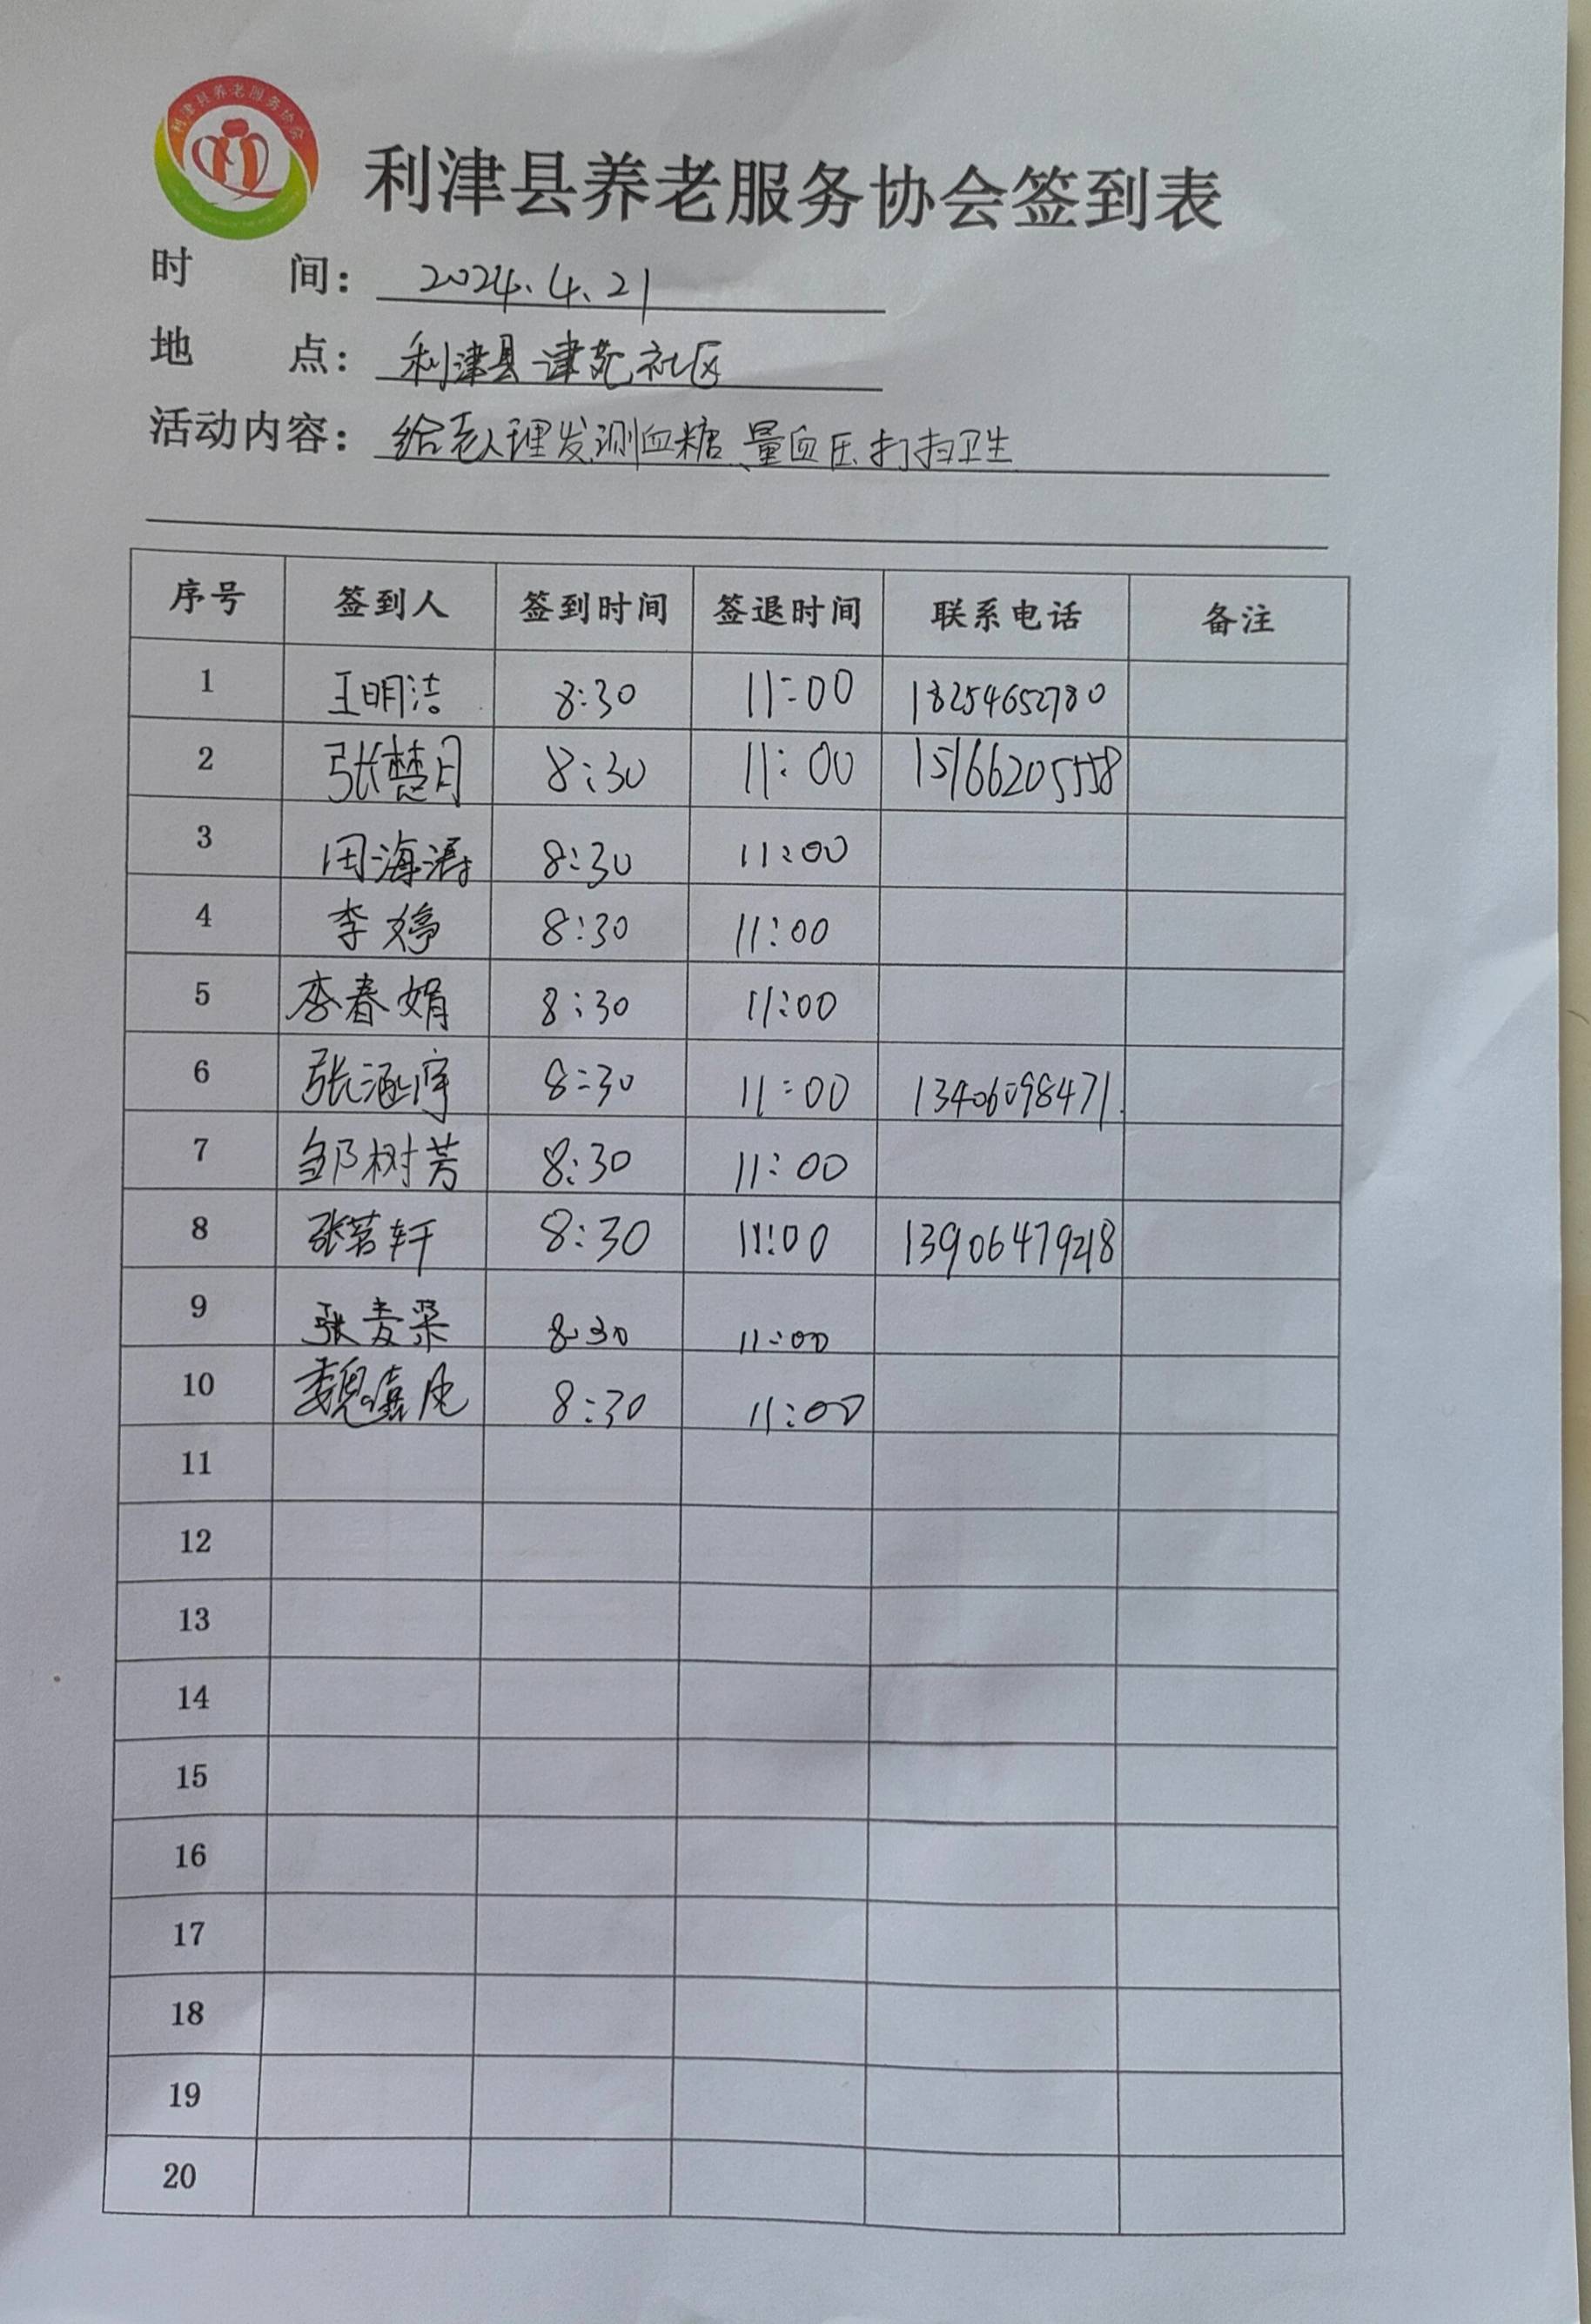 利津县养老服务协会
利津县养老服务协会签到表
时 间： 2024.4.21
地 点： 利津县津苑社区
活动内容： 给老人理发测血糖、量血压打扫卫生
序号 签到人 签到时间 签退时间 联系电话 备注
1 王明洁 8:30 11:00 18254652780
2 张楚月 8:30 11:00 15166205558
3 田海涛 8:30 11:00
4 李婷 8:30 11:00
5 李春娟 8:30 11:00
6 张涵宇 8:30 11:00 13406098471
7 邹树芳 8:30 11:00
8 张茗轩 8:30 11:00 13906479218
9 张麦 8:30 11:00
10 魏嘉 8:30 11:00
11
12
13
14
15
16
17
18
19
20